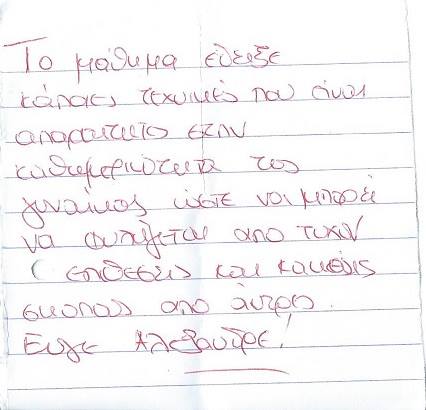 Το μάθημα έδειξε
κάποιες τεχνικές που είναι
απαραίτητο στην
καθημερινότητα της
γυναίκας ώστε να μπορεί
να φυλάγεται από τυχόν
επιθέσεις και κακούς
σκοπούς από άντρες.
Εύγε Αλέξανδρε!